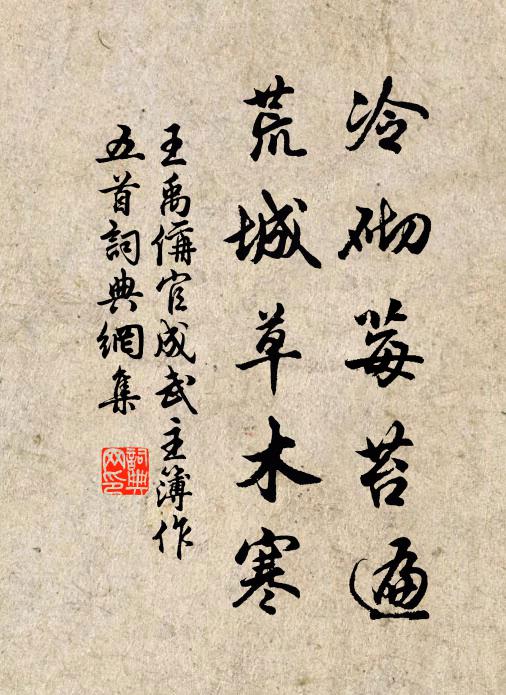 冷砌莓苔遍
荒城草木寒
王禹偁官成武主簿作
五首詞典網集
詞典網印